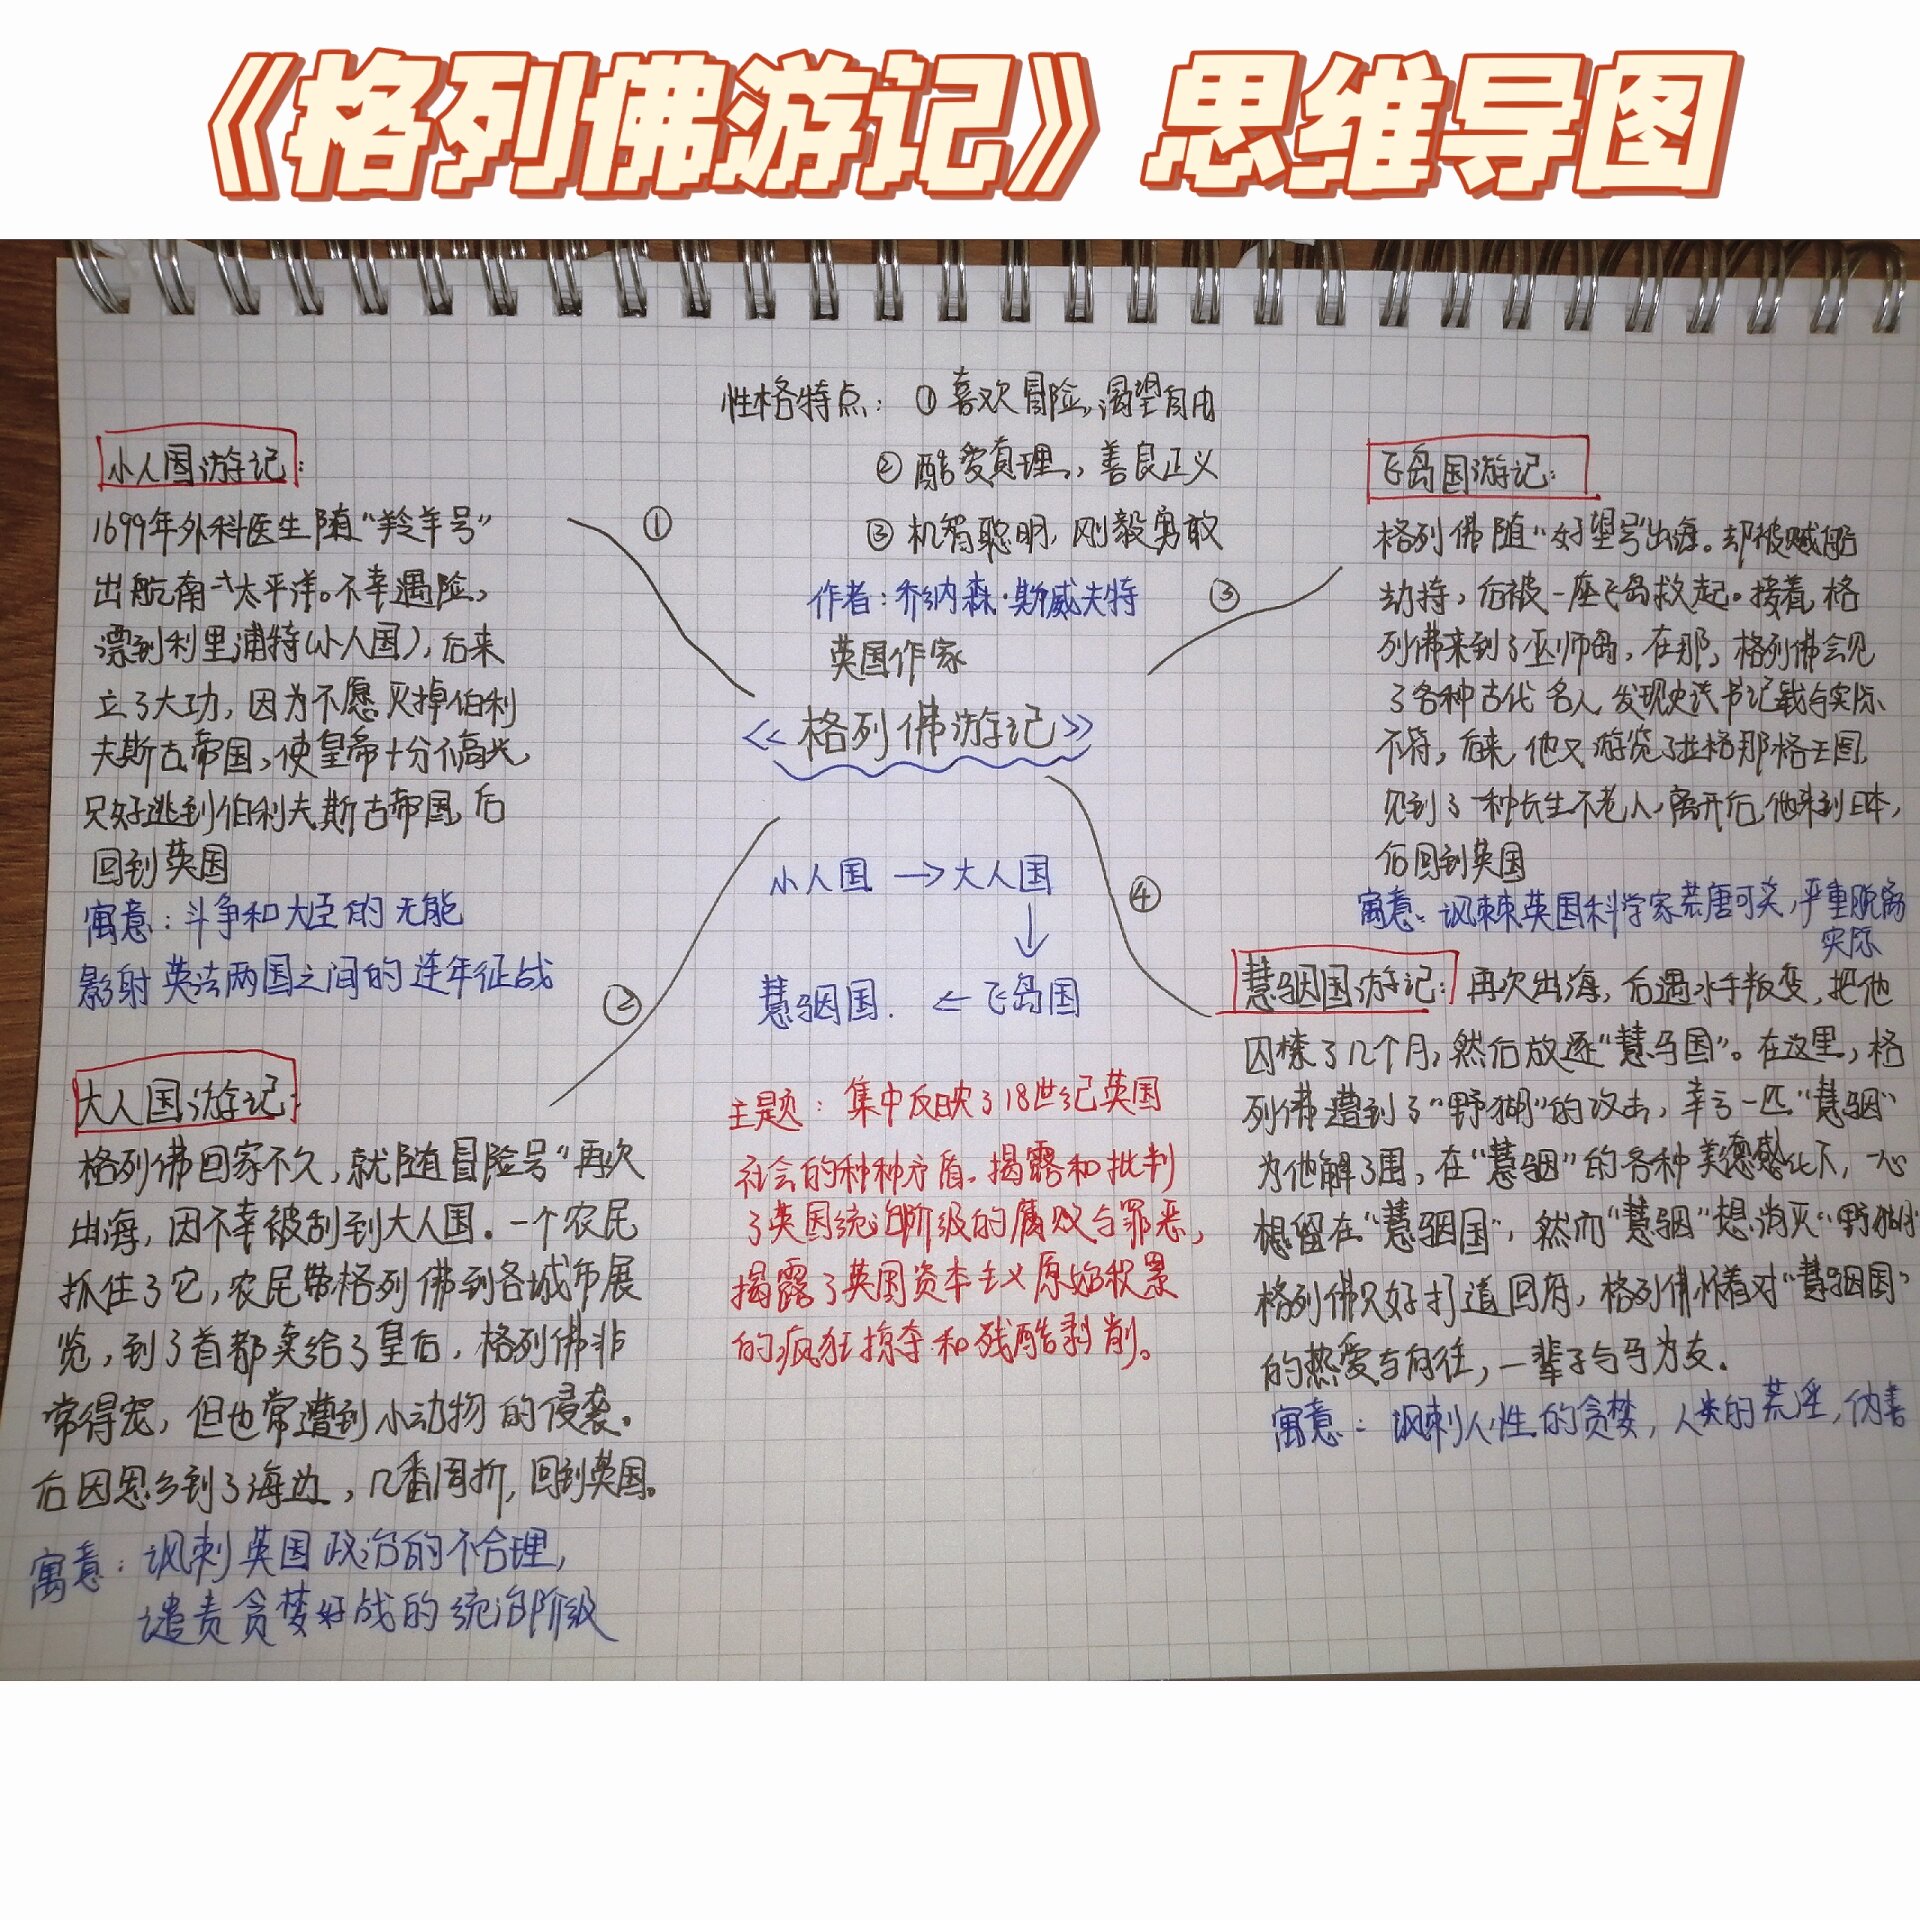 《格列佛游记》思维导图
性格特点：①喜欢冒险，渴望自由
②酷爱真理，善良正义
③机智聪明，刚毅勇敢
作者：乔纳森·斯威夫特
英国作家
《格列佛游记》
小人国游记：
1699年外科医生随“羚羊号”
出航南太平洋。不幸遇险，
漂到利里浦特(小人国)，后来
立了大功，因为不愿灭掉伯利
夫斯古帝国，使皇帝十分不高兴，
只好逃到伯利夫斯古帝国，后
回到英国
寓意：斗争和大臣的无能
影射英法两国之间的连年征战
①
②
③
④
小人国→大人国
↓
慧骃国.←飞岛国
大人国游记：
格列佛回家不久，就随冒险号”再次
出海，因不幸被刮到大人国．一个农民
抓住了它，农民带格列佛到各城市展
览，到了首都卖给了皇后，格列佛非
常得宠，但也常遭到小动物的侵袭。
后因思乡到了海边，几番周折，回到英国。
寓意：讽刺英国政治的不合理，
谴责贪婪好战的统治阶级
主题：集中反映了18世纪英国
社会的种种矛盾．揭露和批判
了英国统治阶级的腐败与罪恶，
揭露了英国资本主义原始积累
的疯狂掠夺和残酷剥削。
飞岛国游记：
格列佛随“好望号”出海。却被贼船
劫持，后被一座飞岛救起。接着，格
列佛来到了巫师岛，在那，格列佛会见
了各种古代名人，发现史书记载与实际
不符，后来，他又游览了拉格那格王国，
见到了一种长生不老人，离开后，他来到日本，
后回到英国
寓意：讽刺英国科学家荒唐可笑，严重脱离
实际
慧骃国游记：再次出海，后遇水手叛变，把他
囚禁了几个月，然后放逐“慧马国”。在这里，格
列佛遭到了“野猢”的攻击，幸亏一匹“慧骃”
为他解了围，在“慧骃”的各种美德感化下，一心
想留在“慧骃国”，然而“慧骃”想消灭“野猢”
格列佛只好打道回府，格列佛怀着对“慧骃国”
的热爱与向往，一辈子与马为友．
寓意：讽刺人性的贪婪，人类的荒淫，伪善